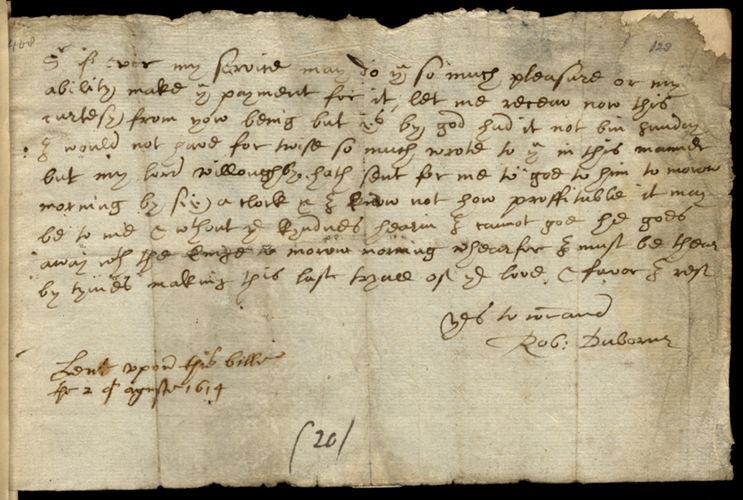 408
128
Sr if ever my service may do yu so much pleasure or my
ability make yu payment for it, let me receav now this
curtesy from yow being but xxs by god had it not bin sunday
I would not have for twise so much wrote to yu in this manner
but my lord willoughby hath sent for me to goe to him to morow
morning by six a clock & I know not how proffitable it may
be to me & without yr kyndnes hearin I cannot goe he goes
away wth the kinge to morow morning whearfor I must be thear
by tymes making this last tryall of yr love & favor I rest
yrs to comaund
Rob: Daborne
Lent upon this bille
the 2 of aguste 1614
(20)